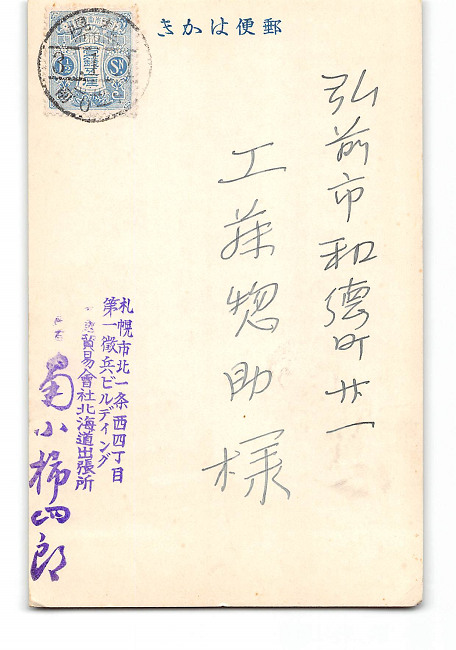 郵便はかき
弘前市和徳町廿一
工藤惣助様
札幌市北一条西四丁目
第一徴兵ビルディング
貿易會社北海道出張所
小柿四郎